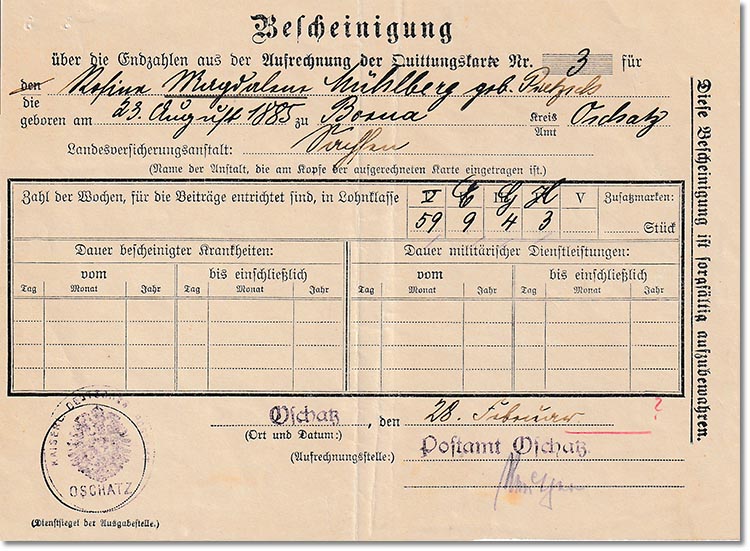 Bescheinigung
über die Endzahlen aus der Aufrechnung der Quittungskarte Nr. 3 für
den Rosine Magdalene Mühlberg geb.
die
geboren am 23. August 1885 zu Borna Kreis Amt Oschatz
Landesversicherungsanstalt: Sachsen
(Name der Anstalt, die am Kopfe der aufgerechneten Karte eingetragen ist.)
Zahl der Wochen, für die Beiträge entrichtet sind, in Lohnklasse V E G H V Zusatzmarken:
59 9 4 3 Stück
Dauer bescheinigter Krankheiten: Dauer militärischer Dienstleistungen:
vom bis einschließlich vom bis einschließlich
Tag Monat Jahr Tag Monat Jahr Tag Monat Jahr Tag Monat Jahr
Oschatz, den 28. Februar ?
(Ort und Datum:)
(Aufrechnungsstelle:) Postamt Oschatz.
KAISERL. DEUTSCHES
OSCHATZ
(Dienstsiegel der Ausgabestelle.)
Diese Bescheinigung ist sorgfältig aufzubewahren.